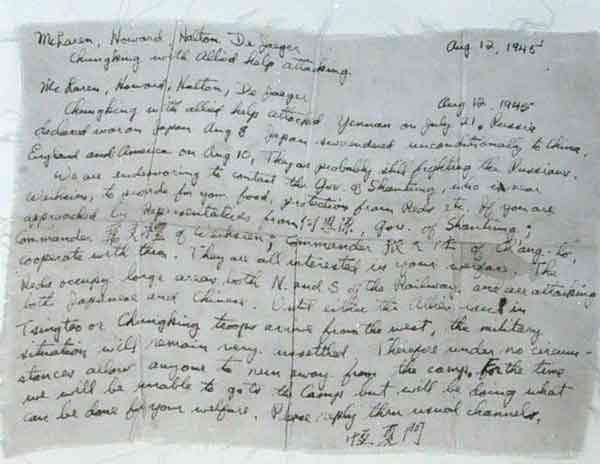 McLaren, Howard, Halton, De Jaeger Aug 12, 1945
Chungking with Allied help attacking.
McLaren, Howard, Halton, De Jaeger Aug 12, 1945
Chungking with allied help attacked Yennan on July 21. Russia
declared war on Japan Aug 8 Japan surrendered unconditionally to China,
England and America on Aug 10, They are probably still fighting the Russians.
We are endeavoring to contact the Gov. of Shantung, who is near
Weihsien, to provide for your food, protection from Reds etc. If you are
approached by Representatives from 何思源, Gov. of Shantung;
Commander of Weihsien; Commander of Ch'ang-lo,
cooperate with them. They are all interested in your welfare. The
Reds occupy large areas both N. and S of the Railway, and are attacking
both Japanese and Chinese. Until either the Allies in
Tsingtao or Chungking troops arrive from the west, the military
situation will remain very unsettled. Therefore under no circum-
stances allow anyone to run away from the camp. For the time
we will be unable to go to the Camp but will be doing what
can be done for your welfare. Please reply thru usual channels.